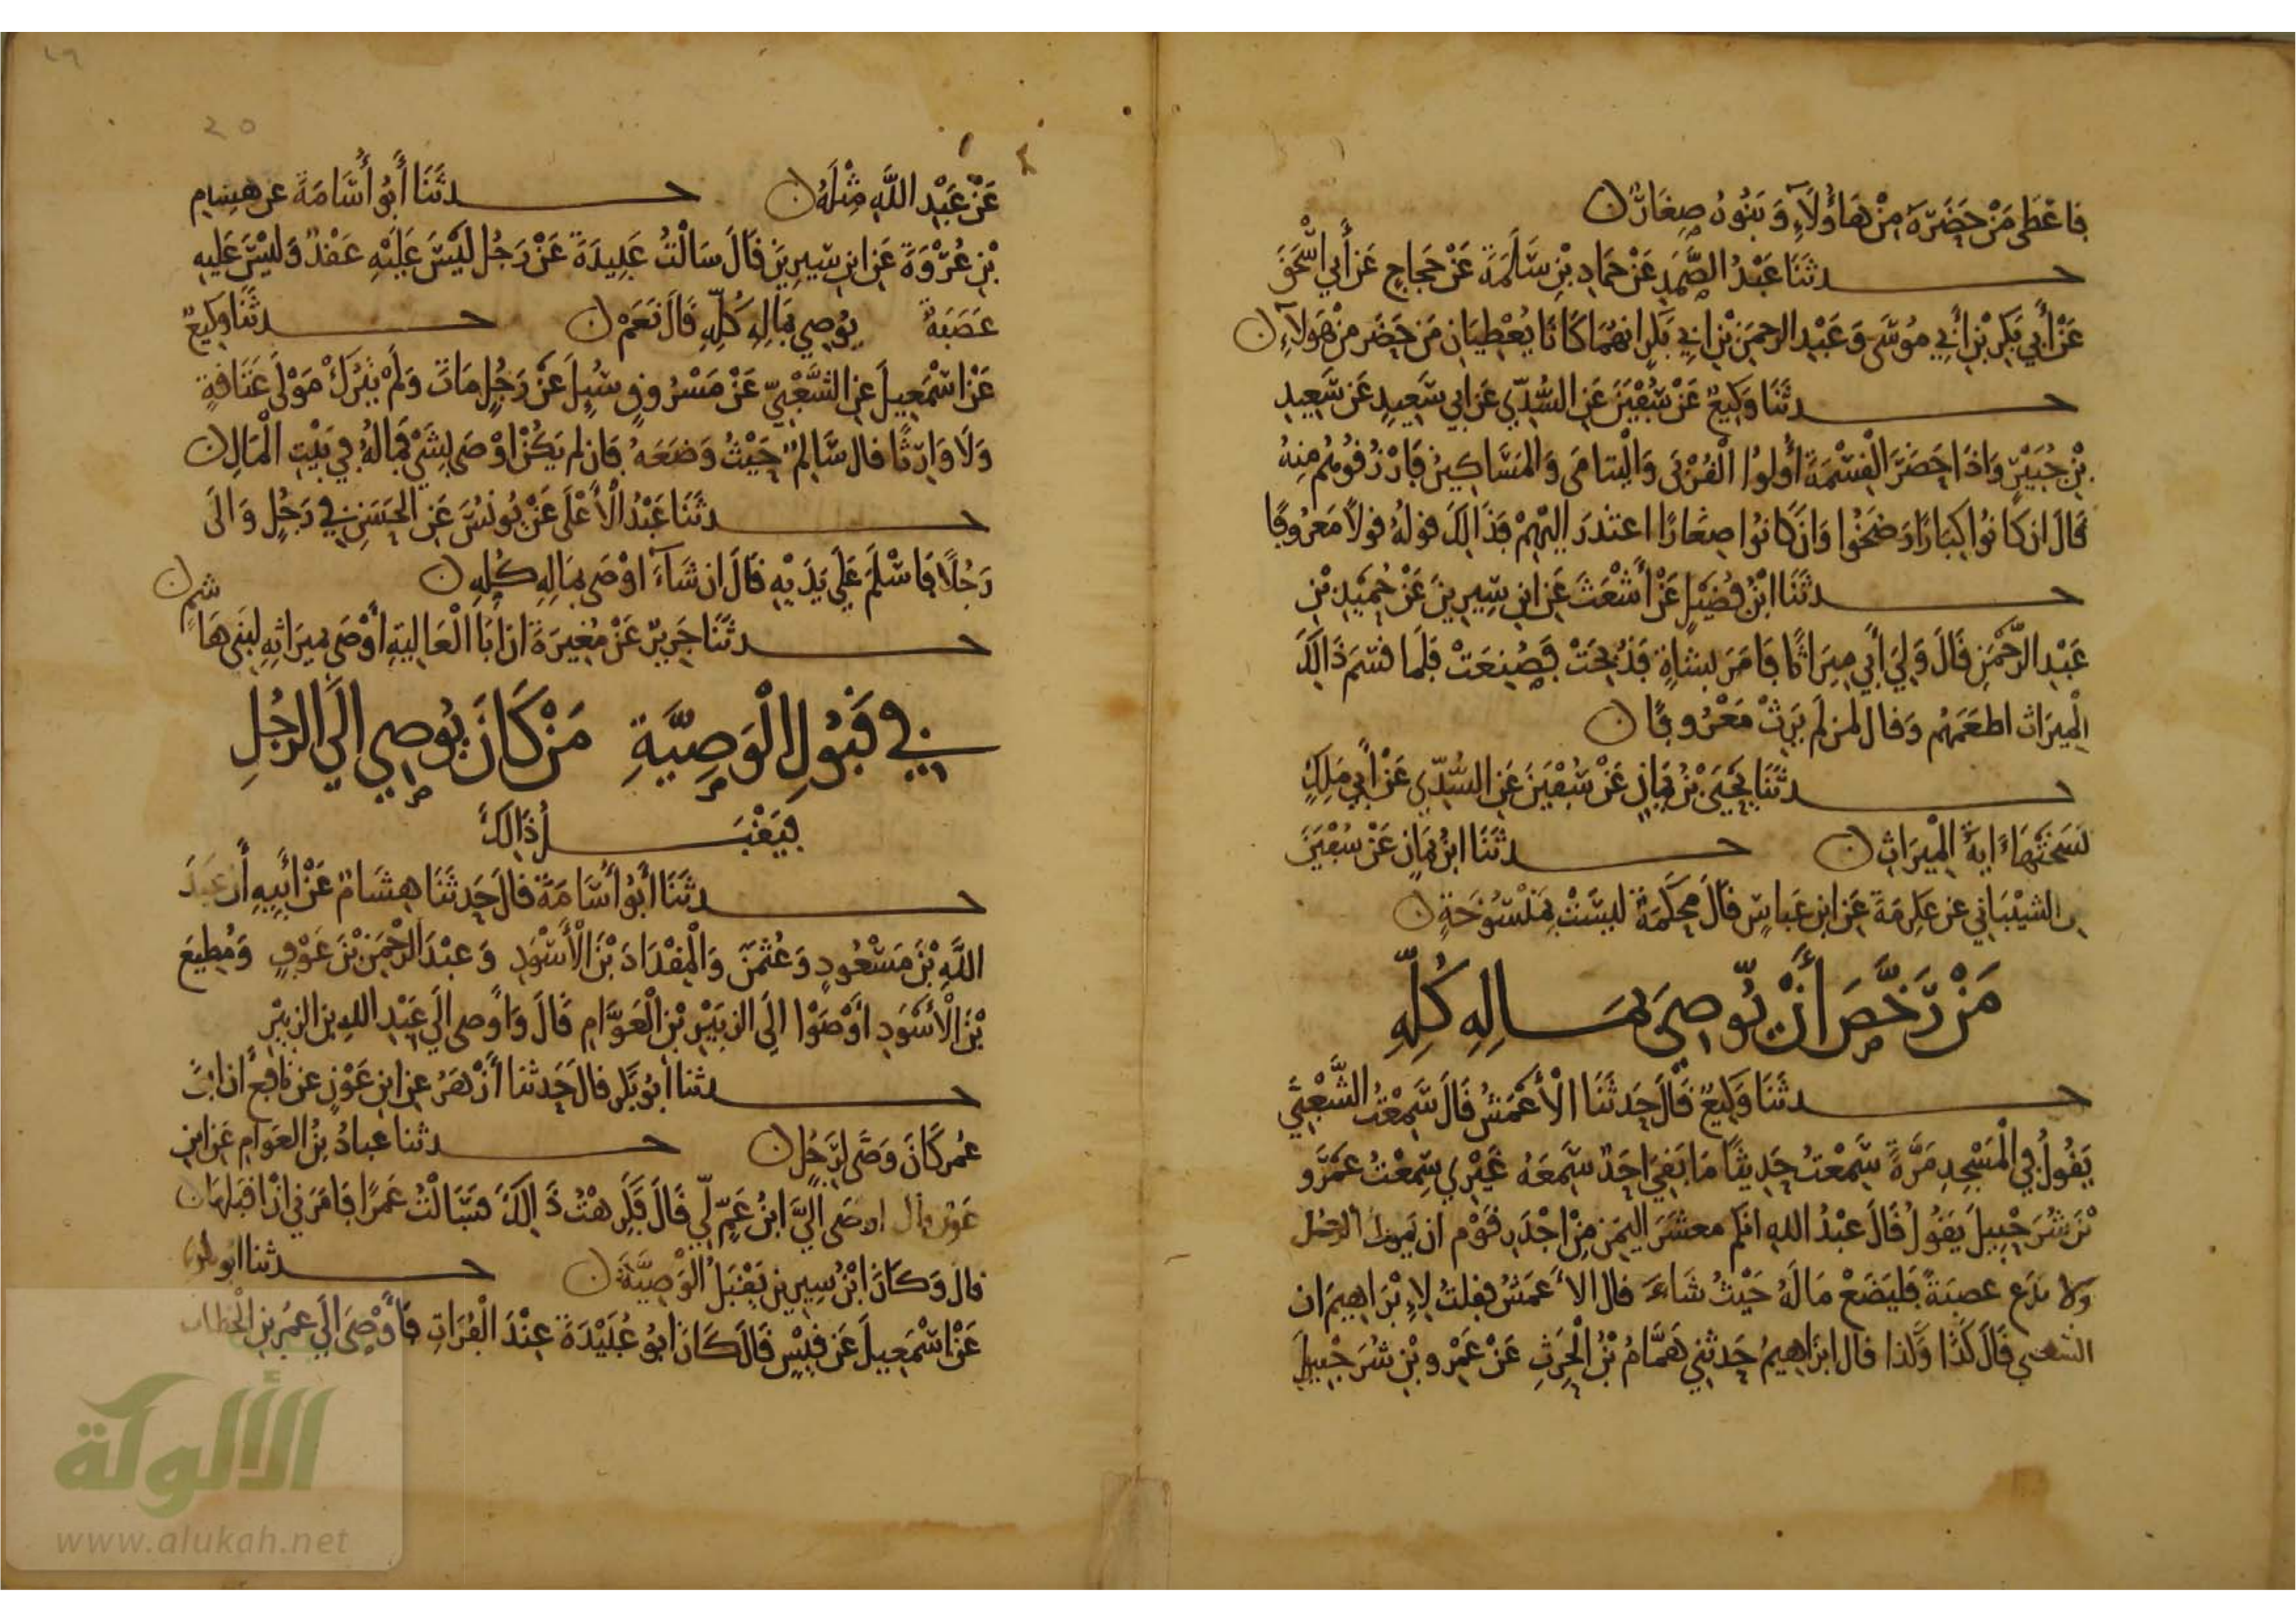 فاعطى من حضره من هاؤلاء وبنون صغار ن
حدثنا عبد الصمد عن حماد بن سلمة عن حجاج عن أبي اسحق
عن أبي بكر بن أبي موسى وعبد الرحمن بن ابي بكر انهما كانا يعطيان من حضر من هولاء ن
حدثنا وكيع عن سفين عن السدي عن ابي سعيد عن سعيد
بن جبير واذا حضر القسمة أولوا القربى واليتامى والمساكين فارزقوهم منه
قال ان كانوا كبارا رضخوا وان كانوا صغارا اعتذر اليهم فذالك قوله قولا معروفا
حدثنا ابن فضيل عن أشعث عن ابن سيرين عن حميد بن
عبد الرحمن قال ولي أبي ميراثا فامر بشاة فذبحت فصنعت فلما قسم ذالك
الميراث اطعمهم وقال لمن لم يرث معروفا ن
حدثنا يحيى بن يمان عن سفين عن السدي عن أبي ملك
نسختها ءاية الميراث ن حدثنا ابن يمان عن سفين
عن الشيباني عن عكرمة عن ابن عباس قال محكمة ليست بمنسوخة ن
من رخص أن يوصى بماله كله
حدثنا وكيع قال حدثنا الأعمش قال سمعت الشعبي
يقول في المسجد مرة سمعت حديثا ما بقي احد سمعه غيري سمعت عمرو
بن شرحبيل يقول قال عبد الله انكم معشر اليمن من اجدر قوم ان يموت الرجل
ولا يدع عصبة فليضع ماله حيث شاء قال الأعمش فقلت لإبراهيم ان
الشعبي قال كذا وكذا قال ابراهيم حدثني همام بن الحرث عن عمرو بن شرحبيل
٢٩
20
عن عبد الله مثله ن حدثنا أبو أسامة عن هشام
بن عروة عن ابن سيرين قال سالت عبيدة عن رجل ليس عليه عقد وليس عليه
عصبة يوصي بماله كله قال نعم ن حدثنا وكيع
عن اسمعيل عن الشعبي عن مسروق سيل عن رجل مات ولم يترك مولى عتاقة
ولا وارثا قال سالم حيث وضعه فان لم يكن اوصى بشي فماله في بيت المال ن
حدثنا عبد الأعلى عن يونس عن الحسن في رجل والى
رجلا فاسلم على يديه قال ان شاء اوصى بماله كله ن
حدثنا جرير عن مغيرة ان ابا العالية أوصى بميراثه لبني هاشم ن
في قبول الوصية من كان يوصي الى الرجل
فيقبل ذالك
حدثنا أبو أسامة قال حدثنا هشام عن أبيه أن عبد
الله بن مسعود وعثمن والمقداد بن الأسود وعبد الرحمن بن عوف ومطيع
بن الأسود أوصوا الى الزبير بن العوام قال وأوصى الى عبد الله بن الزبير
حدثنا أبو بكر قال حدثنا أزهر عن ابن عون عن نافع أن ابن
عمر كان وصى لرجل ن حدثنا عباد بن العوام عن ابن
عون قال اوصى الي ابن عم لي قال فكرهت ذالك فسالت عمرا فامرني ان اقبلها ن
قال وكان ابن سيرين يقبل الوصية ن حدثنا ابو
عن اسمعيل عن قيس قال كان ابو عبيدة عند الفرات فأوصى الى عمر بن الخطاب
الألوكة
www.alukah.net